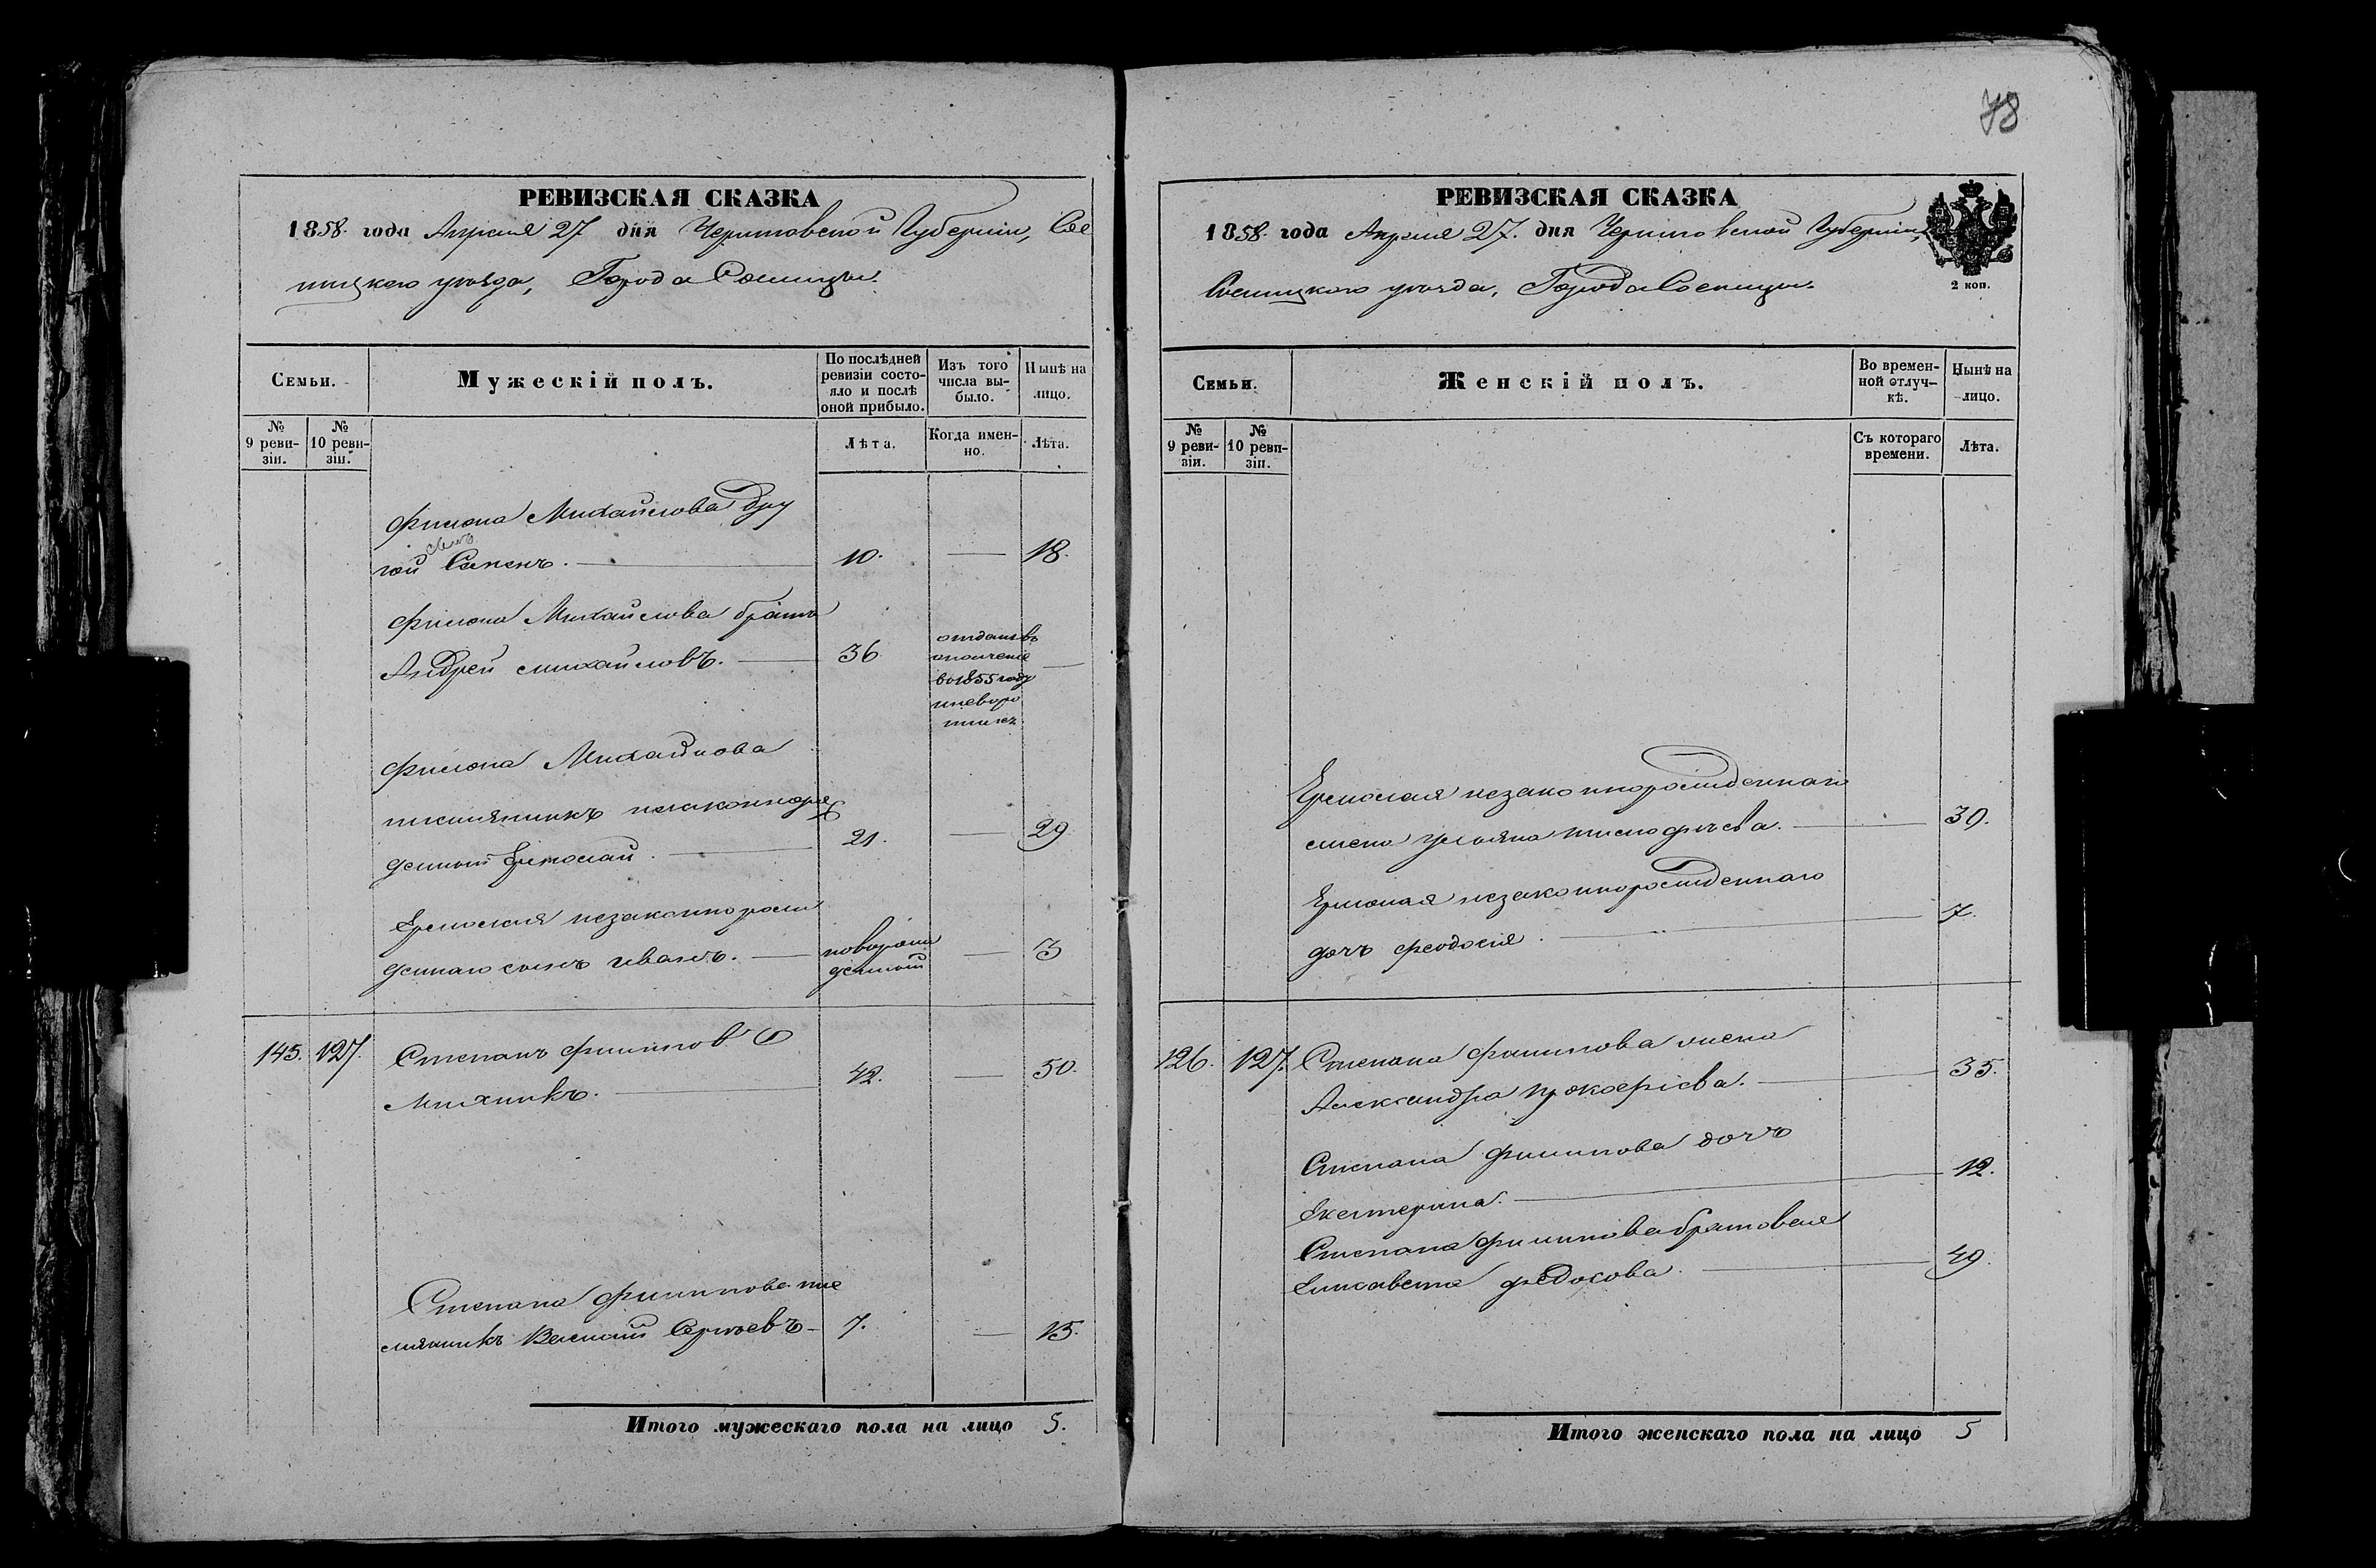 78
РЕВИЗСКАЯ СКАЗКА
1858. года Апреля 27 дня Черниговской Губернии, Сос
ницкого уезда, Города Сосницы.
Семьи.
Мужескій полъ.
По послѣдней ревизіи состо-
яло и послѣ оной прибыло.
Изъ того числа вы-
было.
Нынѣ на лицо.
№ 9 реви-
зіи.
№ 10 реви-
зіи.
Лѣта.
Когда имен-
но.
Лѣта.
Филона Михайлова дру
сынъ
гой Семенъ. 10. — 18.
Филона Михайлова братъ
Андрей Михайловъ. 36. —
отданъ въ
ополченіе
в 1855 году
и неворо
тился
Филона Михайлова
племянникъ незаконнорож
денный Ермолай. 21. — 29
Ермолая незаконнорож
деннаго сынъ Иванъ. — 3
новорож
денный
145. 127. Степанъ Филиповъ
Михникъ. 42. — 50.
Степана Филипова пле
мянникъ Василий Сергѣевъ 7. — 15.
Итого мужескаго пола на лицо 5.
РЕВИЗСКАЯ СКАЗКА
1858. года Апреля 27. дня Черниговской Губернии,
Сосницкого уезда, Города Сосницы.
2 коп.
Семьи.
Женскій полъ.
Во времен-
ной отлуч-
кѣ.
Нынѣ на лицо.
№ 9 реви-
зіи.
№ 10 реви-
зіи.
Съ котораго времени.
Лѣта.
Ермолая незаконнорожденнаго
жена Ульяна Тимофѣева. 30.
Ермолая незаконнорожденнаго
дочъ Феодосия. 7.
126. 127. Степана Филипова жена
Александра Прокофіева. 35.
Степана Филипова дочъ
Екатерина. 12.
Степана Филипова братовая
Елисавета Федосова. 49.
Итого женскаго пола на лицо 5